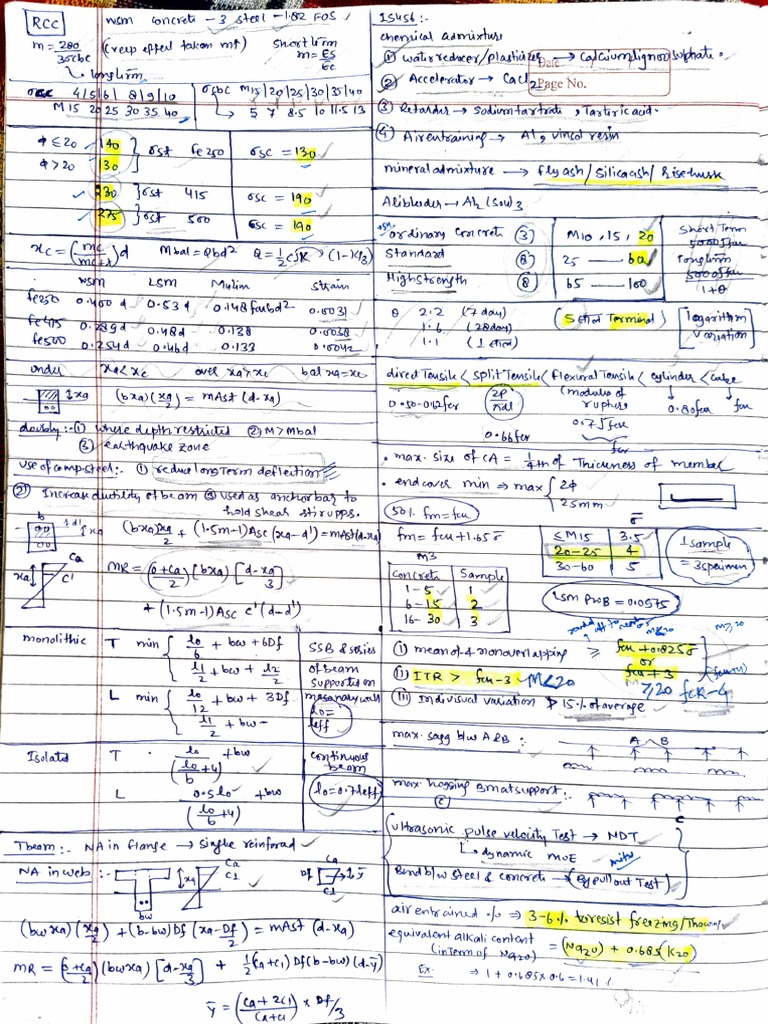 RCC
wsm concrete - 3 steel - 1.82 FOS
m = 280/3σcbc (creep effect taken m↑) short term m = Es/Ec
↳ long term
σcc 4|5|6| 8|9|10
M 15 20 25 30 35 40
σcbc M15|20|25|30|35|40
↳ 5 7 8.5 10 11.5 13
φ ≤ 20 140 } σst fe 250 σsc = 130
φ > 20 130
230 } σst 415 σsc = 190
275 } σst 500 σsc = 190
xc = (mc/mc+t)d Mbal = Qbd² Q = ½cjk (1-k/3)
wsm LSM Mulim strain
fe250 0.400d 0.53d 0.148fckbd² 0.0031
fe415 0.289d 0.48d 0.138 0.0038
fe500 0.254d 0.46d 0.133 0.0042
under xa<xc over xa>xc bal xa=xc
(bxa)(xa/2) = mAst(d-xa)
doubly :- ① where depth restricted ② M>Mbal
③ earthquake zone
use of comp. steel :- ① reduce long term deflection
② Increase ductility of beam ③ used as anchor bar to
hold shear stirupps.
(bxa)xa/2 + (1.5m-1)Asc(xa-d') = mAst(d-xa)
MR = (0+Ca)/2 (bxa)[d-xa/3]
+ (1.5m-1)Asc c'(d-d')
monolithic T min { lo/6 + bw + 6Df
l1/2 + bw + l2/2
L min { lo/12 + bw + 3Df
l1/2 + bw -
SSB & series
of beam
supported on
masanary wall
lo = leff
Isolated T . lo/(lo/b + 4) + bw
L 0.5lo/(lo/b + 4) + bw
continuous
beam
lo = 0.7leff
Tbeam :- NA in flange → singbe reinforad
NA in web :-
(bwxa)(xa/2) + (b-bw)Df(xa-Df/2) = mAst(d-xa)
MR = (0+Ca)/2 (bwxa)[d-xa/3] + ½(Ca+C1)Df(b-bw)(d-ȳ)
ȳ = (Ca+2C1/Ca+C1) × Df/3
IS456 :-
chemical admixture
① water reducer/plasticizes → Calcium lignosulphate.
② Accelerator → CaCl2
Date
Page No.
③ Retarder → sodium tartrate, Tartaric acid.
④ Air entraining → Al, vinsol resin
mineral admixture → fly ash / Silica ash / Rise husk
Alibleeder → Al2(SO4)3
ordinary concrete ③ M10, 15, 20
Standard ⑧ 25 — 60
High strength ⑧ 65 — 100
Short Term
5000√fck
long term
5000√fck/1+θ
θ 2.2 (7 day)
1.6 (28 day)
1.1 (1 साल)
[logarithm variation]
direct Tensile < split Tensile < flexural Tensile < cylinder < cube
2P/πdl
(modulus of
rupture
0.7√fck
0.80fck
fck
0.66fcr
• max. size of CA = 1/4th of Thickness of member
• end cover min → max { 2φ
25mm
50% fm = fcu
fm = fcu + 1.65σ
σ
≤M15 3.5
20-25 4
30-60 5
1 sample
= 3 specimen
M3
Concrete Sample
1-5 1
6-15 2
16-30 3
LSM Prob = 0.0975
① mean of 4 nonoverlapping ≥ fcu + 0.825σ
or
fcu + 3
(ii) ITR > fcu-3 - M<20
M≥20 fck-4
(iii) Individual variation ≯ 15% of average
max. sagg b/w A & B :-
A B
max hogging BM at support :-
©
Ultrasonic pulse velocity Test → NDT
↳ • dynamic MOE
Bond b/w Steel & concrete → (By pull out Test)
air entrained % ⇒ 3-6% to resist freezing/Thawing
equivalent alkali content
(in term of Na2O) = (Na2O) + 0.685(K2O)
Ex. ⇒ 1 + 0.685×0.6 = 1.41%